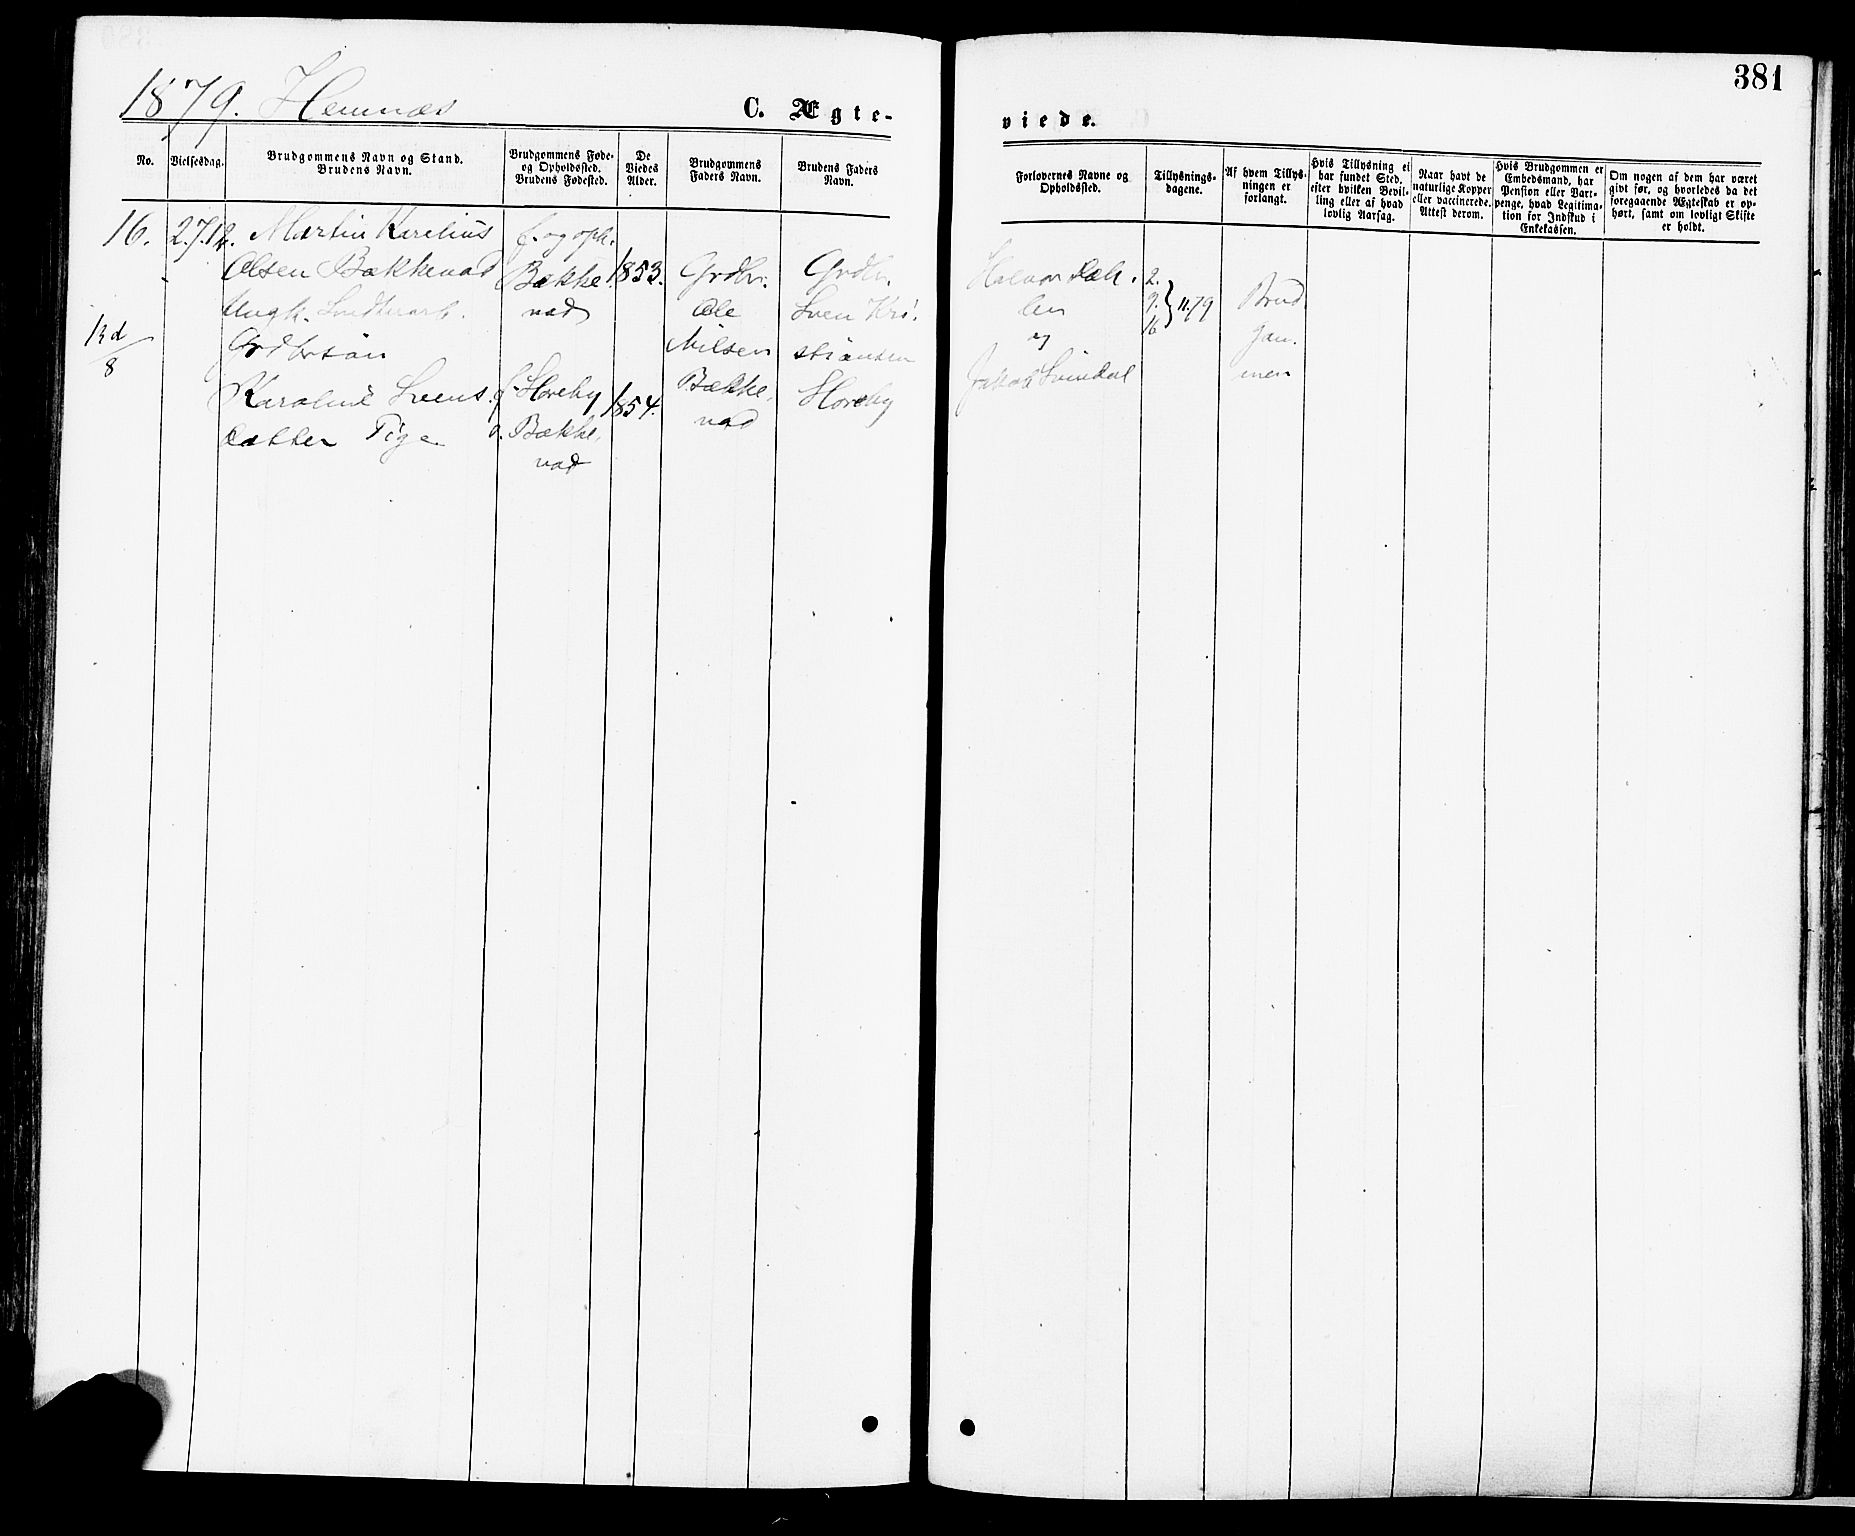 381
1879. Hemnæs
C. Ægte-
viede.
No.
Vielsesdag.
Brudgommens Navn og Stand.
Brudens Navn.
Brudgommens Føde-
og Opholdssted.
Brudens Fødested.
De
Viedes
Alder.
Brudgommens
Faders Navn.
Brudens Faders
Navn.
Forlovernes Navne og
Opholdssted.
Tillysnings-
dagene.
Af hvem Tillys-
ningen er
forlangt.
Hvis Tillysning ei
har fundet Sted,
efter hvilken Bevil-
ling eller af hvad
lovlig Aarsag.
Naar havt de
naturlige Kopper
eller vaccinerede.
Attest derom.
Hvis Brudgommen er
Embedsmand, har
Pension eller Vart-
penge, hvad Legitima-
tion for Indskud i
Enkekassen.
Om nogen af dem har været
givt før, og hvorledes da det
foregaaende Ægteskab er op-
hørt, samt om lovligt Skifte
er holdt.
16.
27.12.
Martin Karelius
Olsen Bækkevad
Ungk.
Grdbrsøn
Karoline Svens
datter Pige
f. og oph.
Bække
vad
f. Horeby
o. Bække
vad
1853.
1854.
Grdbr.
Ole
Nilsen
Bække
vad
Grdbr.
Sven Kri
stiansen
Horeby
Halvor Dah
len
og
Jakob Svindal
2.
9.
16
11.79
Brud
gom
men
8